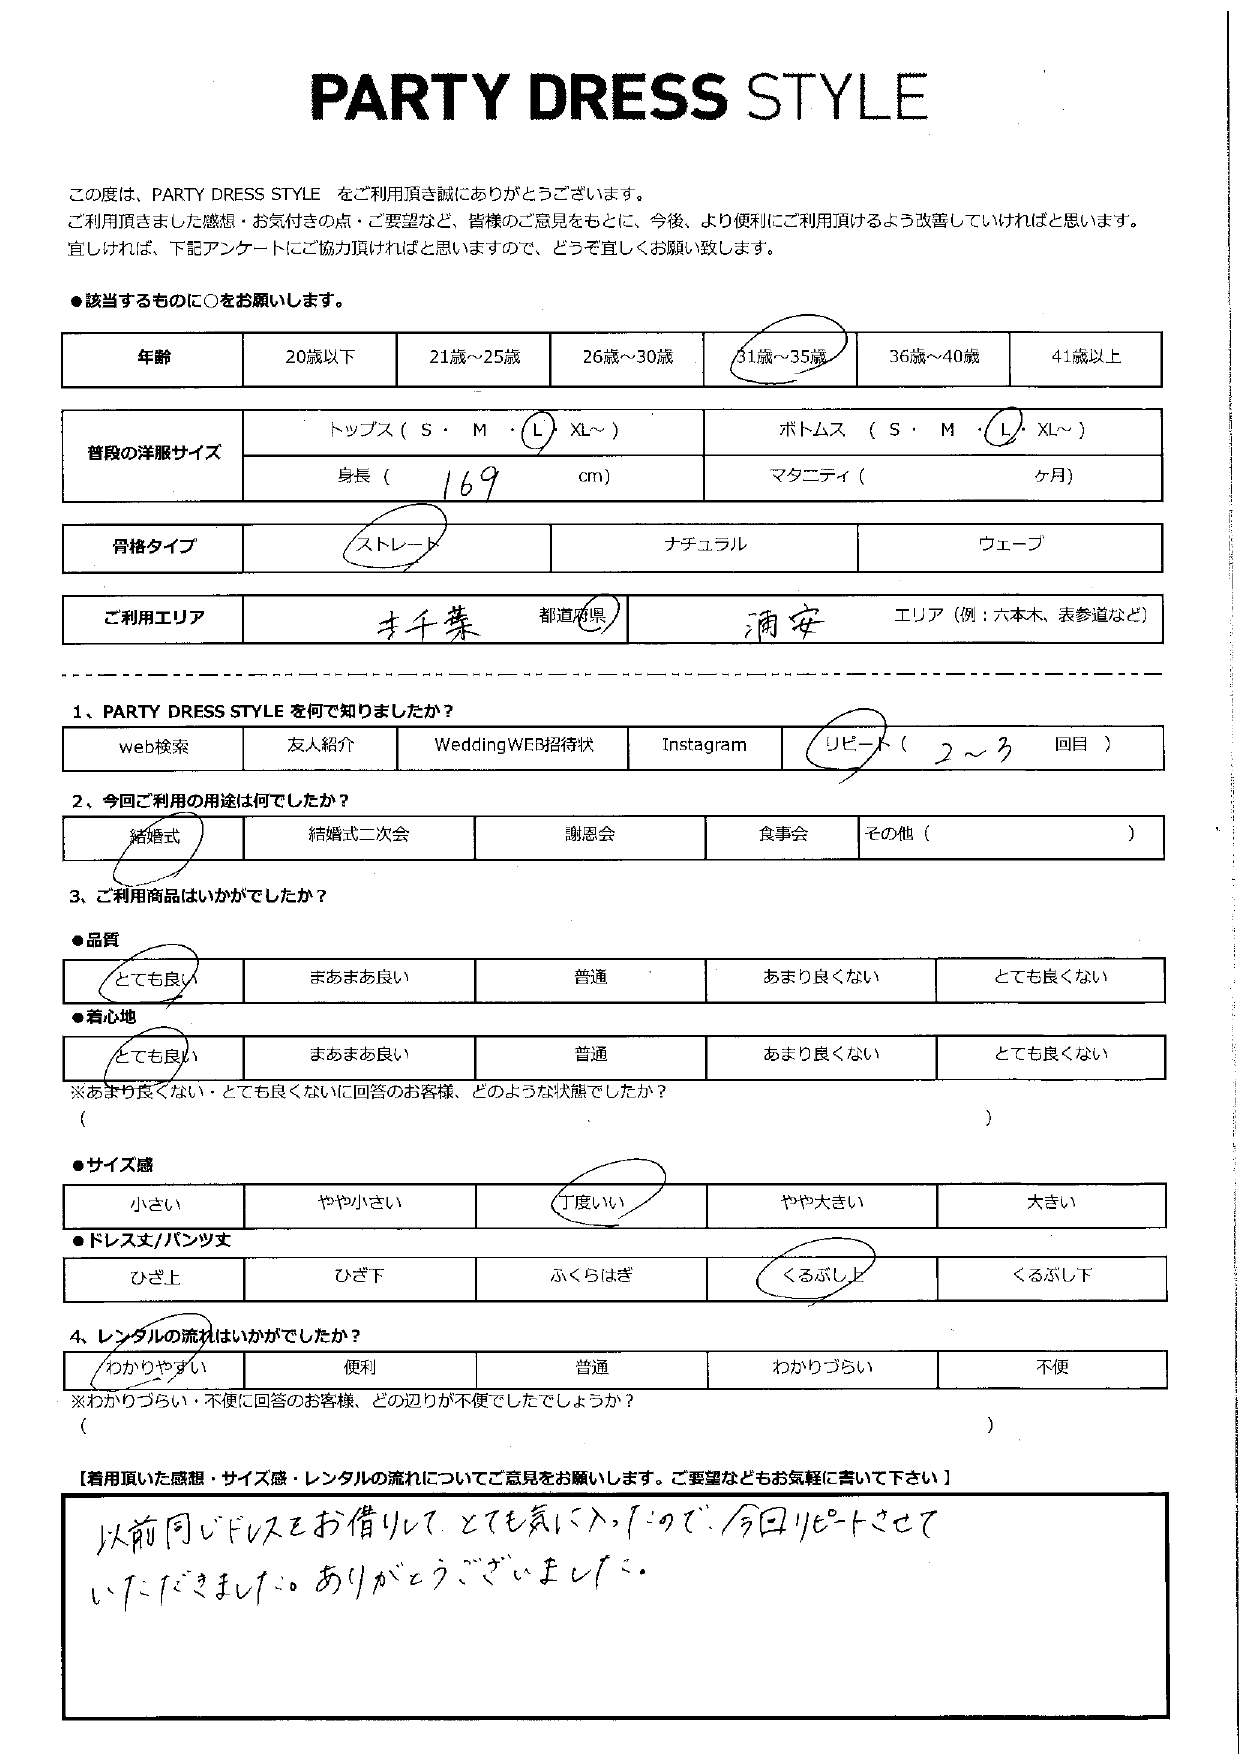 PARTY DRESS STYLE
この度は、PARTY DRESS STYLE　をご利用頂き誠にありがとうございます。
ご利用頂きました感想・お気付きの点・ご要望など、皆様のご意見をもとに、今後、より便利にご利用頂けるよう改善していければと思います。
宜しければ、下記アンケートにご協力頂ければと思いますので、どうぞ宜しくお願い致します。
●該当するものに○をお願いします。
年齢 20歳以下 21歳～25歳 26歳～30歳 31歳～35歳 36歳～40歳 41歳以上
普段の洋服サイズ
トップス ( S ・ M ・ L ・ XL～ ) ボトムス ( S ・ M ・ L ・ XL～ )
身長 ( 169 cm) マタニティ ( ヶ月)
骨格タイプ ストレート ナチュラル ウェーブ
ご利用エリア 千葉 都道府県 浦安 エリア（例：六本木、表参道など）
1、PARTY DRESS STYLE を何で知りましたか？
web検索 友人紹介 WeddingWEB招待状 Instagram リピート ( 2～3 回目 )
2、今回ご利用の用途は何でしたか？
結婚式 結婚式二次会 謝恩会 食事会 その他 ( )
3、ご利用商品はいかがでしたか？
●品質
とても良い まあまあ良い 普通 あまり良くない とても良くない
●着心地
とても良い まあまあ良い 普通 あまり良くない とても良くない
※あまり良くない・とても良くないに回答のお客様、どのような状態でしたか？
( )
●サイズ感
小さい やや小さい 丁度いい やや大きい 大きい
●ドレス丈/パンツ丈
ひざ上 ひざ下 ふくらはぎ くるぶし上 くるぶし下
4、レンタルの流れはいかがでしたか？
わかりやすい 便利 普通 わかりづらい 不便
※わかりづらい・不便に回答のお客様、どの辺りが不便でしたでしょうか？
( )
【着用頂いた感想・サイズ感・レンタルの流れについてご意見をお願いします。ご要望などもお気軽に書いて下さい 】
以前同じドレスをお借りして とても気に入ったので、今回リピートさせて
いただきました。ありがとうございました。